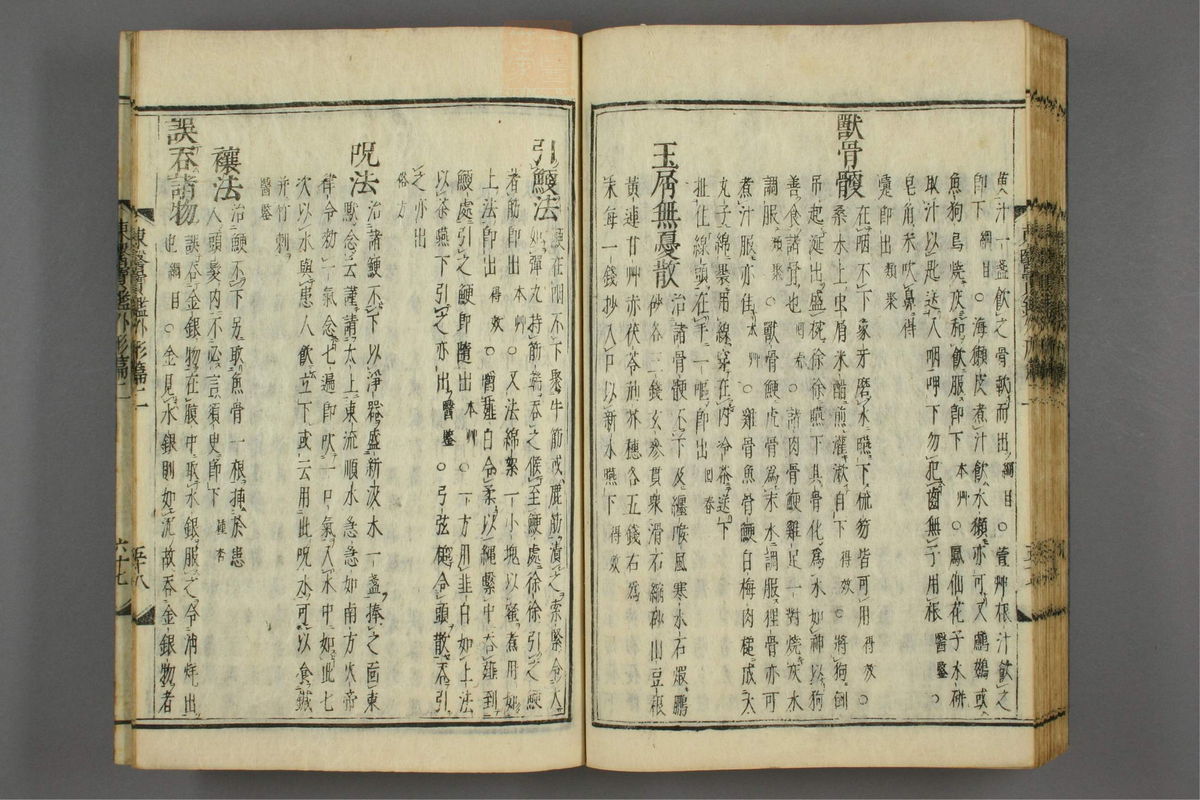 黄汁一盞飮之骨軟而出綱目○萱艸根汁飮之
卽下綱目○海獺皮煮汁飮水獺亦可又鸕鷀或
魚狗烏燒灰和飮服卽下本艸○鳳仙花子水硏
取汁以匙送入咽門下勿犯齒無子用根醫鑒○
皂角末吹鼻得
嚔卽出類聚
獸骨骾在咽不下象牙磨水嚥下梳笏皆可用得效○
桑木上虫屑米醋煎灌漱自下得效○將狗倒
吊起涎出盛椀徐徐嚥下其骨化爲水如神以狗
善食諸骨也回春○諸肉骨鯁雞足一對燒灰水
調服類聚○獸骨鯁虎骨爲末水調服狸骨亦可
煮汁服亦佳本艸○雞骨魚骨鯁白梅肉槌成大
丸子綿裹用線穿在內冷茶送下
扯住線頭在手一嘔卽出回春
玉屑無憂散治諸骨骾不下及纏喉風寒水石煆鵬
砂各三錢玄參貫衆滑石縮砂山豆根
黄連甘艸赤茯苓荊芥穗各五錢右爲
末每一錢抄入口以新水嚥下得效
引鯁法鯁在咽不下取牛筋或鹿筋漬之索緊令大
如彈丸持筋端吞之候至鯁處徐徐引之鯁
者筋卽出本艸○又法綿絮一小塊以蜜煮用如
上法卽出得效○嚼薤白令柔以繩繫中吞薤到
鯁處引之鯁卽隨出本艸○一方用韭白如上法
以茶嚥下引之亦出醫鑒○弓弦槌令頭散吞引
之亦出
俗方
呪法治諸鯁不下以淨器盛新汲水一盞捧之面東
默念云謹請太上東流順水急急如南方火帝
律令勑一氣念七遍卽吹一口氣入水中如此七
次以水與患人飮立下或云用此呪水可以食鍼
幷竹刺
醫鑒
禳法治鯁不下另取魚骨一根揷於患
人頭髮內不必言須臾卽下種杏
誤吞諸物誤吞金銀物在腹中取水銀服之令消烊出
也綱目○金見水銀則如泥故吞金銀物者
東醫寶鑑外形篇二
五十八
六十七